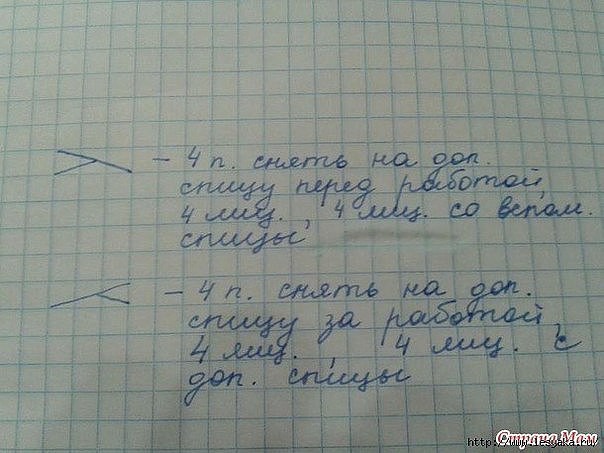 - 4 п. снять на доп.
спицу перед работой,
4 лиц., 4 лиц. со вспом.
спицы
- 4 п. снять на доп.
спицу за работой,
4 лиц., 4 лиц. с
доп. спицы
Страна Мам